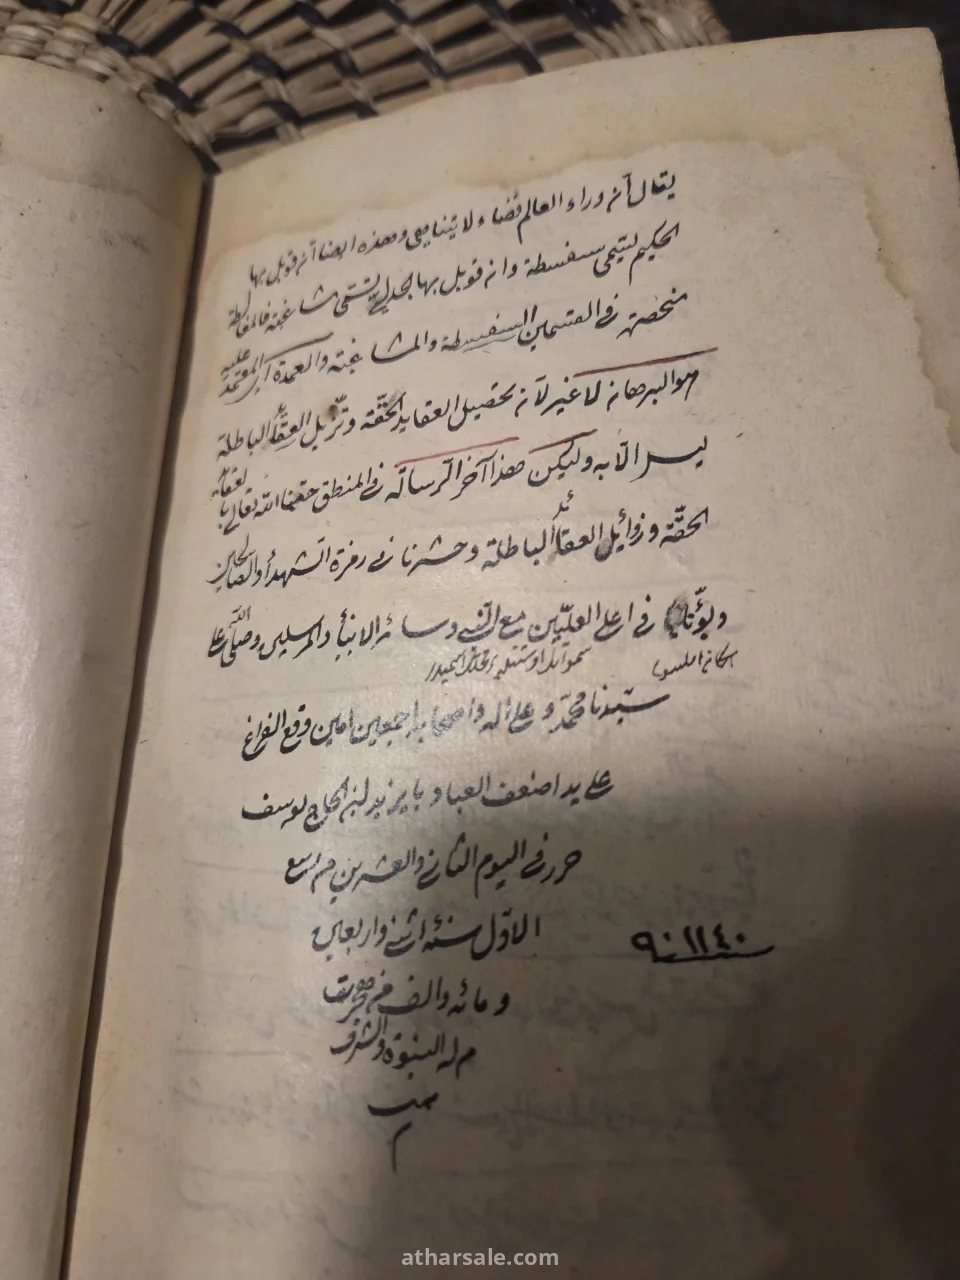 يقال أن وراء العالم فضاء لا يتناهى وهذه ايضا أن قوبل بها
الحكيم ليتمى سفسطة وان قوبل بها الجدلي تسمى مشاغبة فالمغالطة
منحصرة في القسمين السفسطة والمشاغبة والعمدة اى المعتمد عليه
هو البرهان لا غير لأن تحصيل العقايد الحقة وتزيل العقائد الباطلة
ليس الا به وليكن هذا آخر الرسالة في المنطق حققنا الله تعالى بالعقائد
الحقة وزوائل العقائد الباطلة وحشرنا في زمرة الشهداء والصالحين
وبوئنا في اعلى العليين مع النبي وسائر الانبياء والمرسلين وصلى الله على
سيدنا محمد وعلى اله واصحابه اجمعين امين وقع الفراغ
على يد اضعف العباد بايزيد ابن الحاج يوسف
حرر في اليوم الثاني والعشرين من ربيع
الاول سنة اثنى واربعين
٩٠١١٤٠
ومائه والف من هجرت
من له النبوة والشرف
تمت
م
atharsale.com